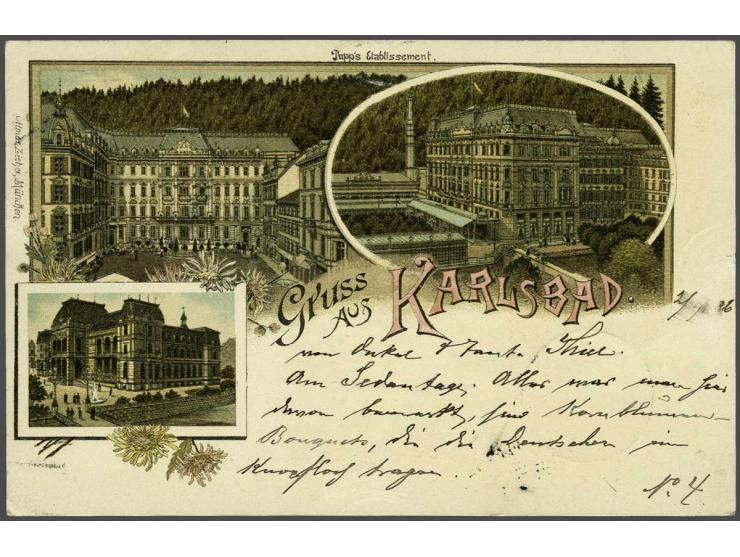 Pupp's Etablissement.
Gruss
aus
KARLSBAD.
von Onkel & Tante Thiel.
Am Sedantage. Alles was man hier
davon bemerkt, sind Kornblumen-
Bouquets, die die Deutschen im
Knopfloch tragen.
No. 4